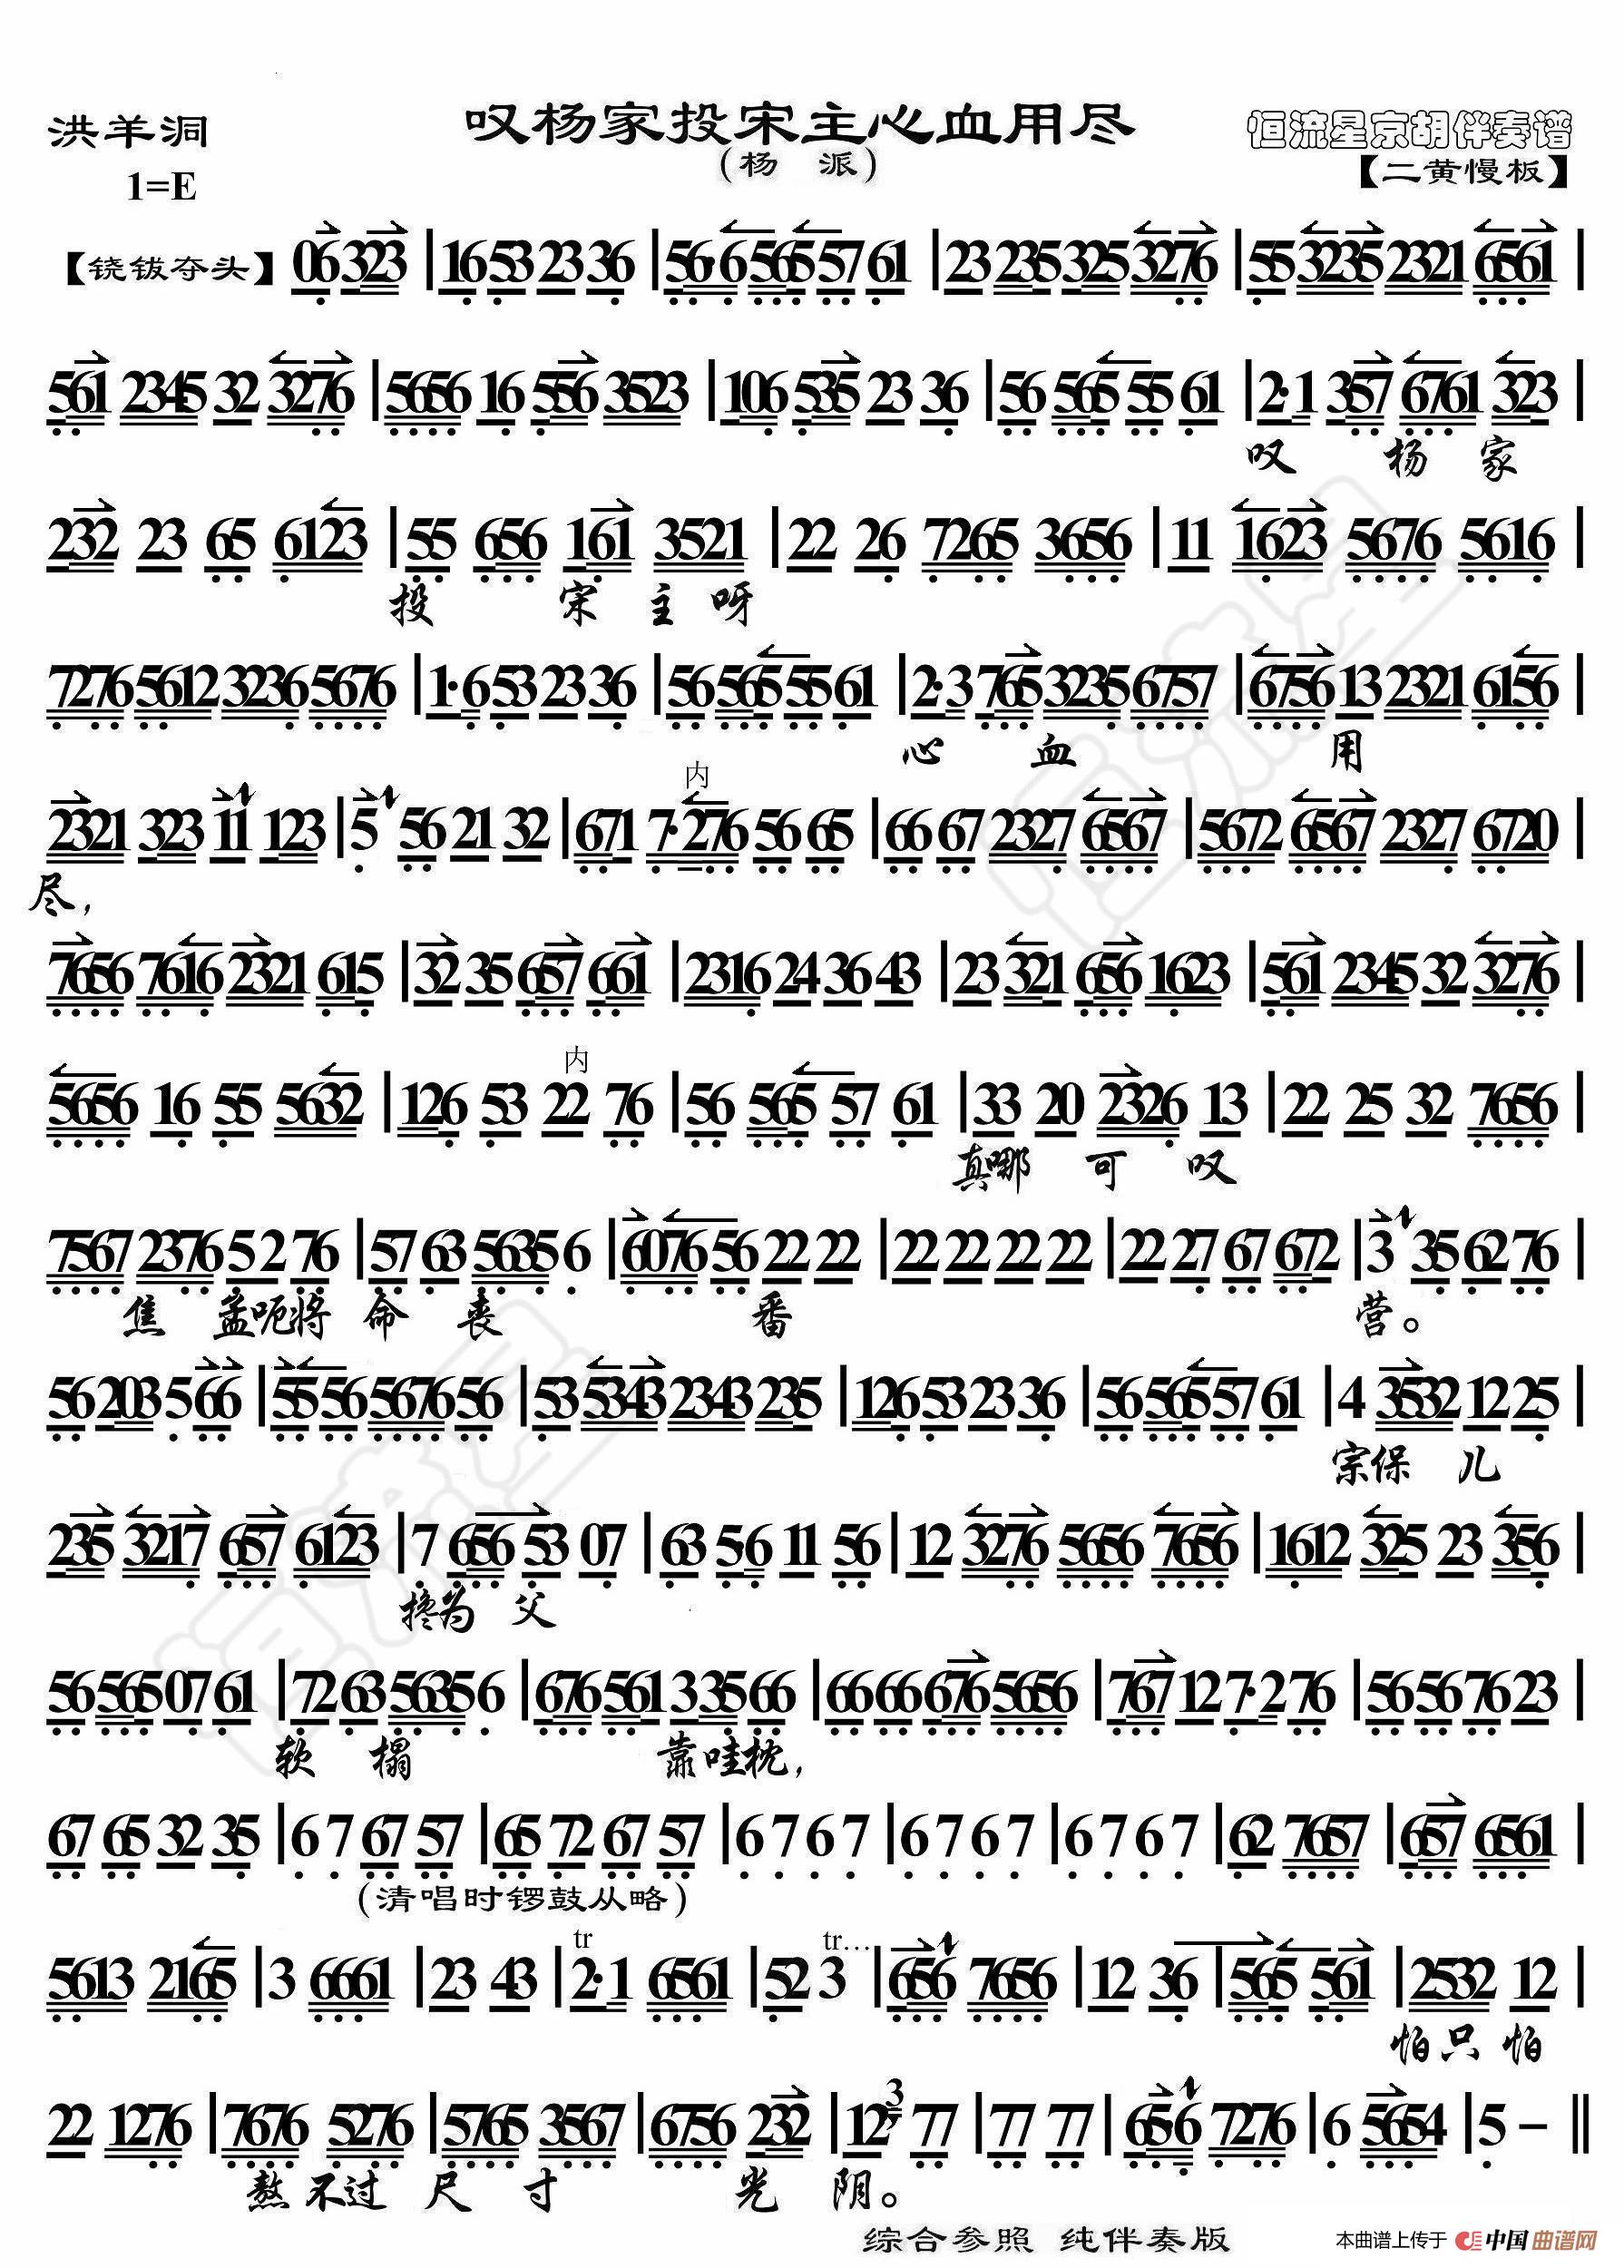 洪羊洞
叹杨家投宋主心血用尽
恒流星京胡伴奏谱
(杨 派)
【二黄慢板】
1=E
【铙钹夺头】 06 323 | 16 53 23 36 | 56·6 565 57 61 | 23 235 325 3276 | 55 3235 2321 6561 |
561 2345 32 3276 | 5656 16 556 3523 | 106 535 23 36 | 56 565 55 61 | 2·1 357 6761 323 |
叹 杨 家
232 23 65 6123 | 55 656 161 3521 | 22 26 7265 3656 | 11 1623 5676 5616 |
投 宋 主 呀
7276 5612 3236 5676 | 1·6 53 23 36 | 56 565 55 61 | 2·3 765 3235 6757 | 6756 13 2321 6156 |
心 血 用
内
2321 323 11 123 | 5 56 21 32 | 671 7·276 56 65 | 66 67 2327 6567 | 5672 6567 2327 6720 |
尽,
7656 7616 2321 615 | 32 35 657 661 | 2316 24 36 43 | 23 321 656 1623 | 561 2345 32 3276 |
内
5656 16 55 5632 | 126 53 22 76 | 56 565 57 61 | 33 20 2326 13 | 22 25 32 7656 |
真哪 可 叹
7567 2376 52 76 | 57 63 5635 6 | 6076 56 22 22 | 22 22 22 22 | 22 27 67 672 | 3 35 62 76 |
焦 孟呃将 命 丧 番 营。
56 203 5 66 | 55 56 5676 56 | 53 5343 2343 235 | 126 53 23 36 | 56 565 57 61 | 4 3532 12 25 |
宗保 儿
235 3217 657 6123 | 7 656 53 07 | 63 5·6 11 56 | 12 3276 5656 7656 | 1612 325 23 356 |
搀为 父
56 565 07 61 | 72 63 5635 6 | 676 561 335 66 | 66 66 676 5656 | 767 12 7·2 76 | 56 56 76 23 |
软 榻 靠哇枕,
67 65 32 35 | 6 7 67 57 | 65 72 67 57 | 6 7 6 7 | 6 7 6 7 | 6 7 6 7 | 62 7657 | 657 6561 |
(清唱时锣鼓从略)
tr tr...
5613 2165 | 3 6661 | 23 43 | 2·1 6561 | 52 3 | 656 7656 | 12 36 | 565 561 | 2532 12 |
怕只 怕
3
22 1276 | 7676 5276 | 5765 3567 | 6756 232 | 12 77 | 77 77 | 65·6 7276 | 6 5654 | 5 - ‖
熬 不过 尺 寸 光 阴。
综合参照 纯伴奏版
本曲谱上传于 中国曲谱网